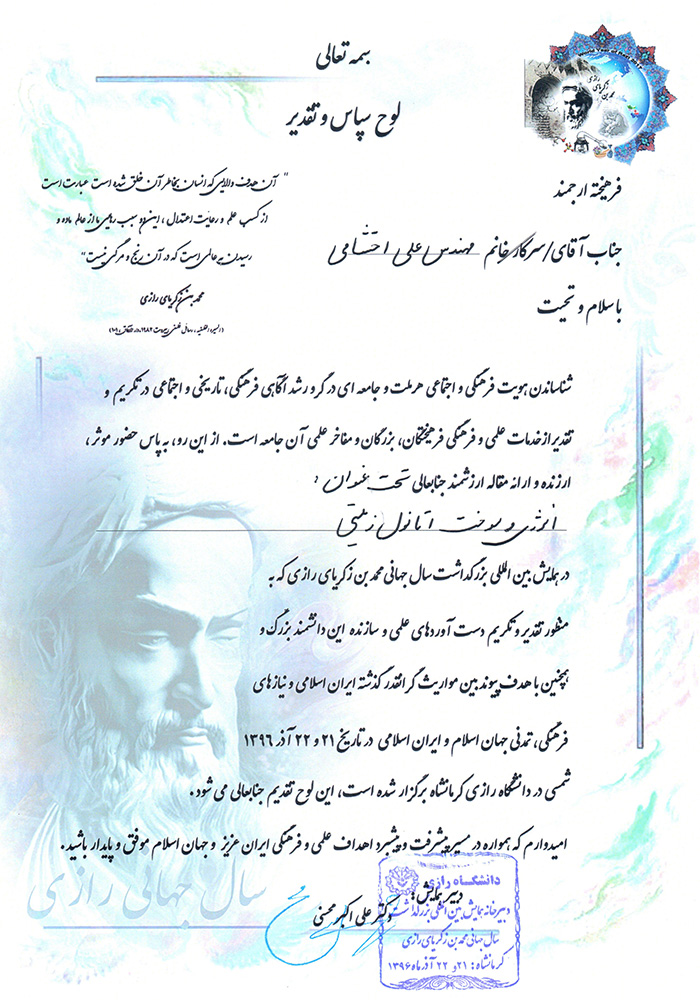 بسمه تعالی
لوح سپاس و تقدیر
محمد بن زکریای رازی
" آن هدف والایی که انسان بخاطر آن خلق شده است عبارت است
از کسب علم و رعایت اعتدال ، این دو سبب رهایی ما از عالم ماده و
رسیدن به عالمی است که در آن رنج و مرگی نیست "
محمد بن زکریای رازی
فرهیخته ارجمند
جناب آقای/سرکار خانم مهندس علی احتشامی
با سلام و تحیت
شناساندن هویت فرهنگی و اجتماعی هر ملت و جامعه ای در گرو رشد آگاهی فرهنگی، تاریخی و اجتماعی در تکریم و
تقدیر از خدمات علمی و فرهنگی فرهیختگان، بزرگان و مفاخر علمی آن جامعه است. از این رو، به پاس حضور موثر ،
ارزنده و ارائه مقاله ارزشمند جنابعالی تحت عنوان :
انرژی و سوخت اتانول زیستی
در همایش بین المللی بزرگداشت سال جهانی محمد بن زکریای رازی که به
منظور تقدیر و تکریم دست آوردهای علمی و سازنده این دانشمند بزرگ و
همچنین با هدف پیوند بین مواریث گرانقدر گذشته ایران اسلامی و نیازهای
فرهنگی، تمدنی جهان اسلام و ایران اسلامی در تاریخ ۲۱ و ۲۲ آذر ۱۳۹۶
شمسی در دانشگاه رازی کرمانشاه برگزار شده است، این لوح تقدیم جنابعالی می شود .
امیدوارم که همواره در مسیر پیشرفت و پیشبرد اهداف علمی و فرهنگی ایران عزیز و جهان اسلام موفق و پایدار باشید .
سال جهانی رازی
دبیر همایش:
دکتر علی اکبر محسنی
دانشگاه رازی
دبیرخانه همایش بین المللی بزرگداشت
سال جهانی محمد بن زکریای رازی
کرمانشاه : ۲۱ و ۲۲ آذر ماه ۱۳۹۶